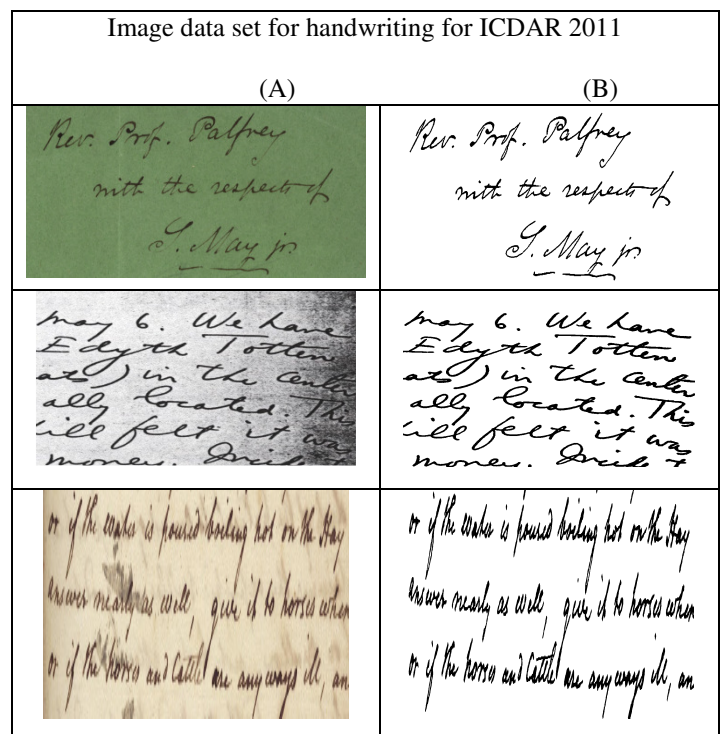 Image data set for handwriting for ICDAR 2011
(A) (B)
Rev. Prof. Palfrey
with the respects of
S. May jr.
Rev. Prof. Palfrey
with the respects of
S. May jr.
may 6. We have
Edyth Totten
ats) in the center
ally located. This
ill felt it was
money.
may 6. We have
Edyth Totten
ats) in the center
ally located. This
ill felt it was
money.
or if the water is poured boiling hot on the Hay
answer nearly as well, give it to horses when
or if the horses and Cattle are any ways ill, an
or if the water is poured boiling hot on the Hay
answer nearly as well, give it to horses when
or if the horses and Cattle are any ways ill, an